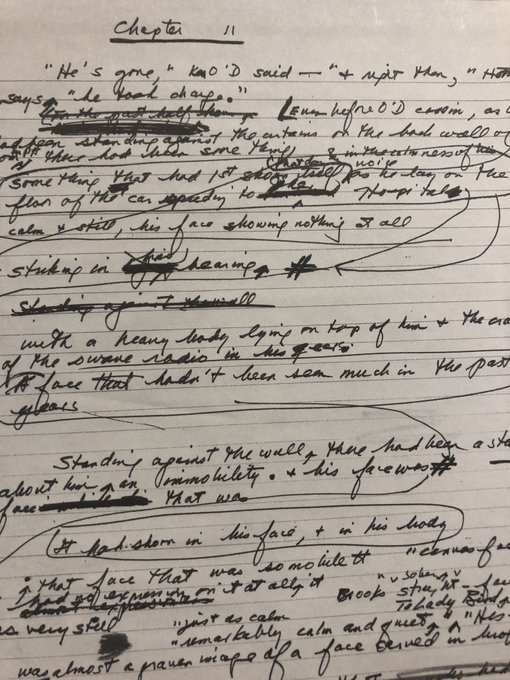 Chapter 11
"He's gone," Ken O'D said — "& right then," Ho
says, "he took charge."
For the past half hour, Even before O'D came in, as
had been standing against the curtains on the back wall of
there had been something, & in the calmness of his
voice
something that had 1st shown itself as he lay on the
floor of the car speeding to the Hospital,
calm & still, his face showing nothing at all
striking in his bearing, #
Standing against the wall
with a heavy body lying on top of him & the
of the radio in his ears.
A face that hadn't been seen much in the past
years
Standing against the wall, there had been a
about him, an immobility. & his face was #
face that was
It had shown in his face, & in his body
"canvas
that face that was so mobile
had no expression on it at all, it
"sober,"
Brooks straight-
To Lady Bird
was very still
"just as calm
"remarkably calm and quiet," "His
was almost a graven image of a face carved in